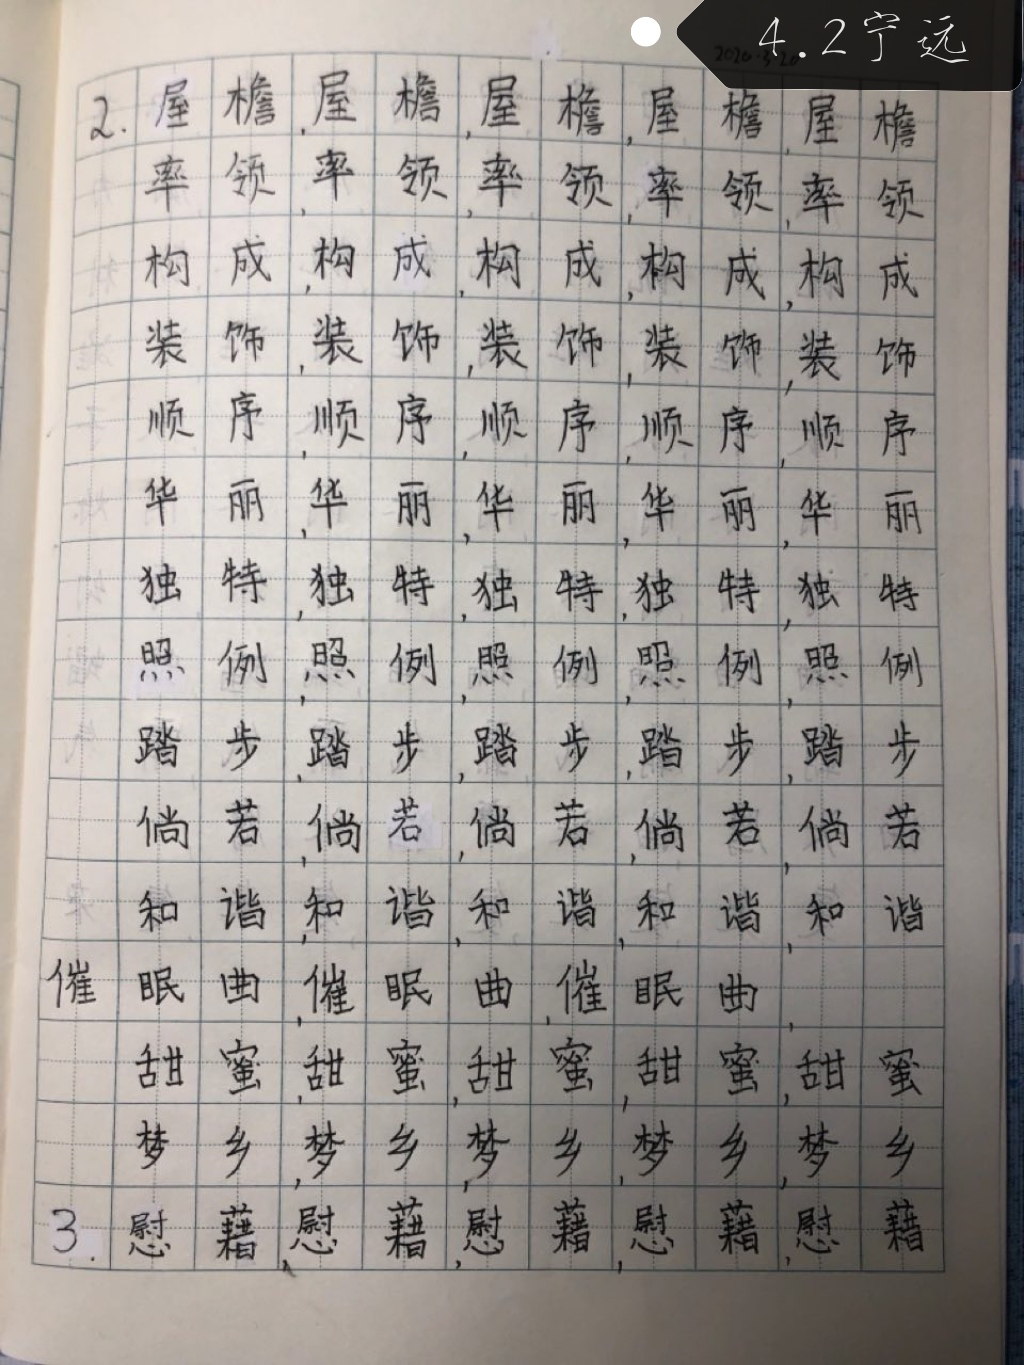 4.2宁远
2020.3.20
2.屋檐,屋檐,屋檐,屋檐,屋檐
率领,率领,率领,率领,率领
构成,构成,构成,构成,构成
装饰,装饰,装饰,装饰,装饰
顺序,顺序,顺序,顺序,顺序
华丽,华丽,华丽,华丽,华丽
独特,独特,独特,独特,独特
照例,照例,照例,照例,照例
踏步,踏步,踏步,踏步,踏步
倘若,倘若,倘若,倘若,倘若
和谐,和谐,和谐,和谐,和谐
催眠曲,催眠曲,催眠曲,
甜蜜,甜蜜,甜蜜,甜蜜,甜蜜
梦乡,梦乡,梦乡,梦乡,梦乡
3.慰藉,慰藉,慰藉,慰藉,慰藉